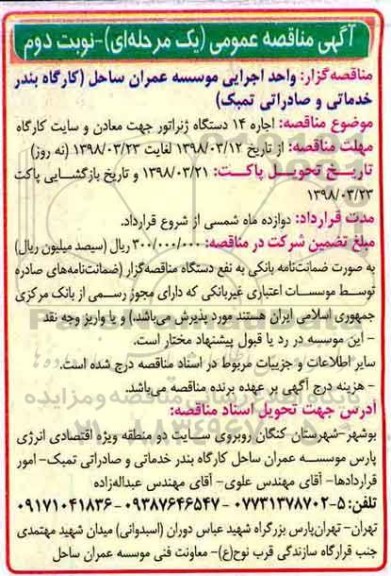 آگهی مناقصه عمومی (یک مرحله‌ای)-نوبت دوم
مناقصه‌گزار: واحد اجرایی موسسه عمران ساحل (کارگاه بندر
خدماتی و صادراتی تمبک)
موضوع مناقصه: اجاره ۱۴ دستگاه ژنراتور جهت معادن و سایت کارگاه
مهلت مناقصه: از تاریخ ۱۳۹۸/۰۳/۱۲ لغایت ۱۳۹۸/۰۳/۲۳ (نه روز)
تاریخ تحویل پاکت: ۱۳۹۸/۰۳/۲۱ و تاریخ بازگشایی پاکت
۱۳۹۸/۰۳/۲۳
مدت قرارداد: دوازده ماه شمسی از شروع قرارداد.
مبلغ تضمین شرکت در مناقصه: ۳۰۰/۰۰۰/۰۰۰ ریال (سیصد میلیون ریال)
به صورت ضمانت‌نامه بانکی به نفع دستگاه مناقصه‌گزار (ضمانت‌نامه‌های صادره
توسط موسسات اعتباری غیربانکی که دارای مجوز رسمی از بانک مرکزی
جمهوری اسلامی ایران هستند مورد پذیرش می‌باشد) و یا واریز وجه نقد
- این موسسه در رد یا قبول پیشنهاد مختار است.
سایر اطلاعات و جزییات مربوط در اسناد مناقصه درج شده است.
- هزینه درج آگهی بر عهده برنده مناقصه می‌باشد.
آدرس جهت تحویل اسناد مناقصه:
بوشهر-شهرستان کنگان روبروی سایت دو منطقه ویژه اقتصادی انرژی
پارس موسسه عمران ساحل کارگاه بندر خدماتی و صادراتی تمبک- امور
قراردادها- آقای مهندس علوی- آقای مهندس عبداله‌زاده
تلفن: ۵-۰۷۷۳۱۳۷۸۷۰۲ - ۰۹۳۸۷۶۴۶۵۴۷ - ۰۹۱۷۱۰۴۱۸۳۶
تهران- تهران‌پارس بزرگراه شهید عباس دوران (اسبدوانی) میدان شهید مهتمدی
جنب قرارگاه سازندگی قرب نوح(ع)- معاونت فنی موسسه عمران ساحل